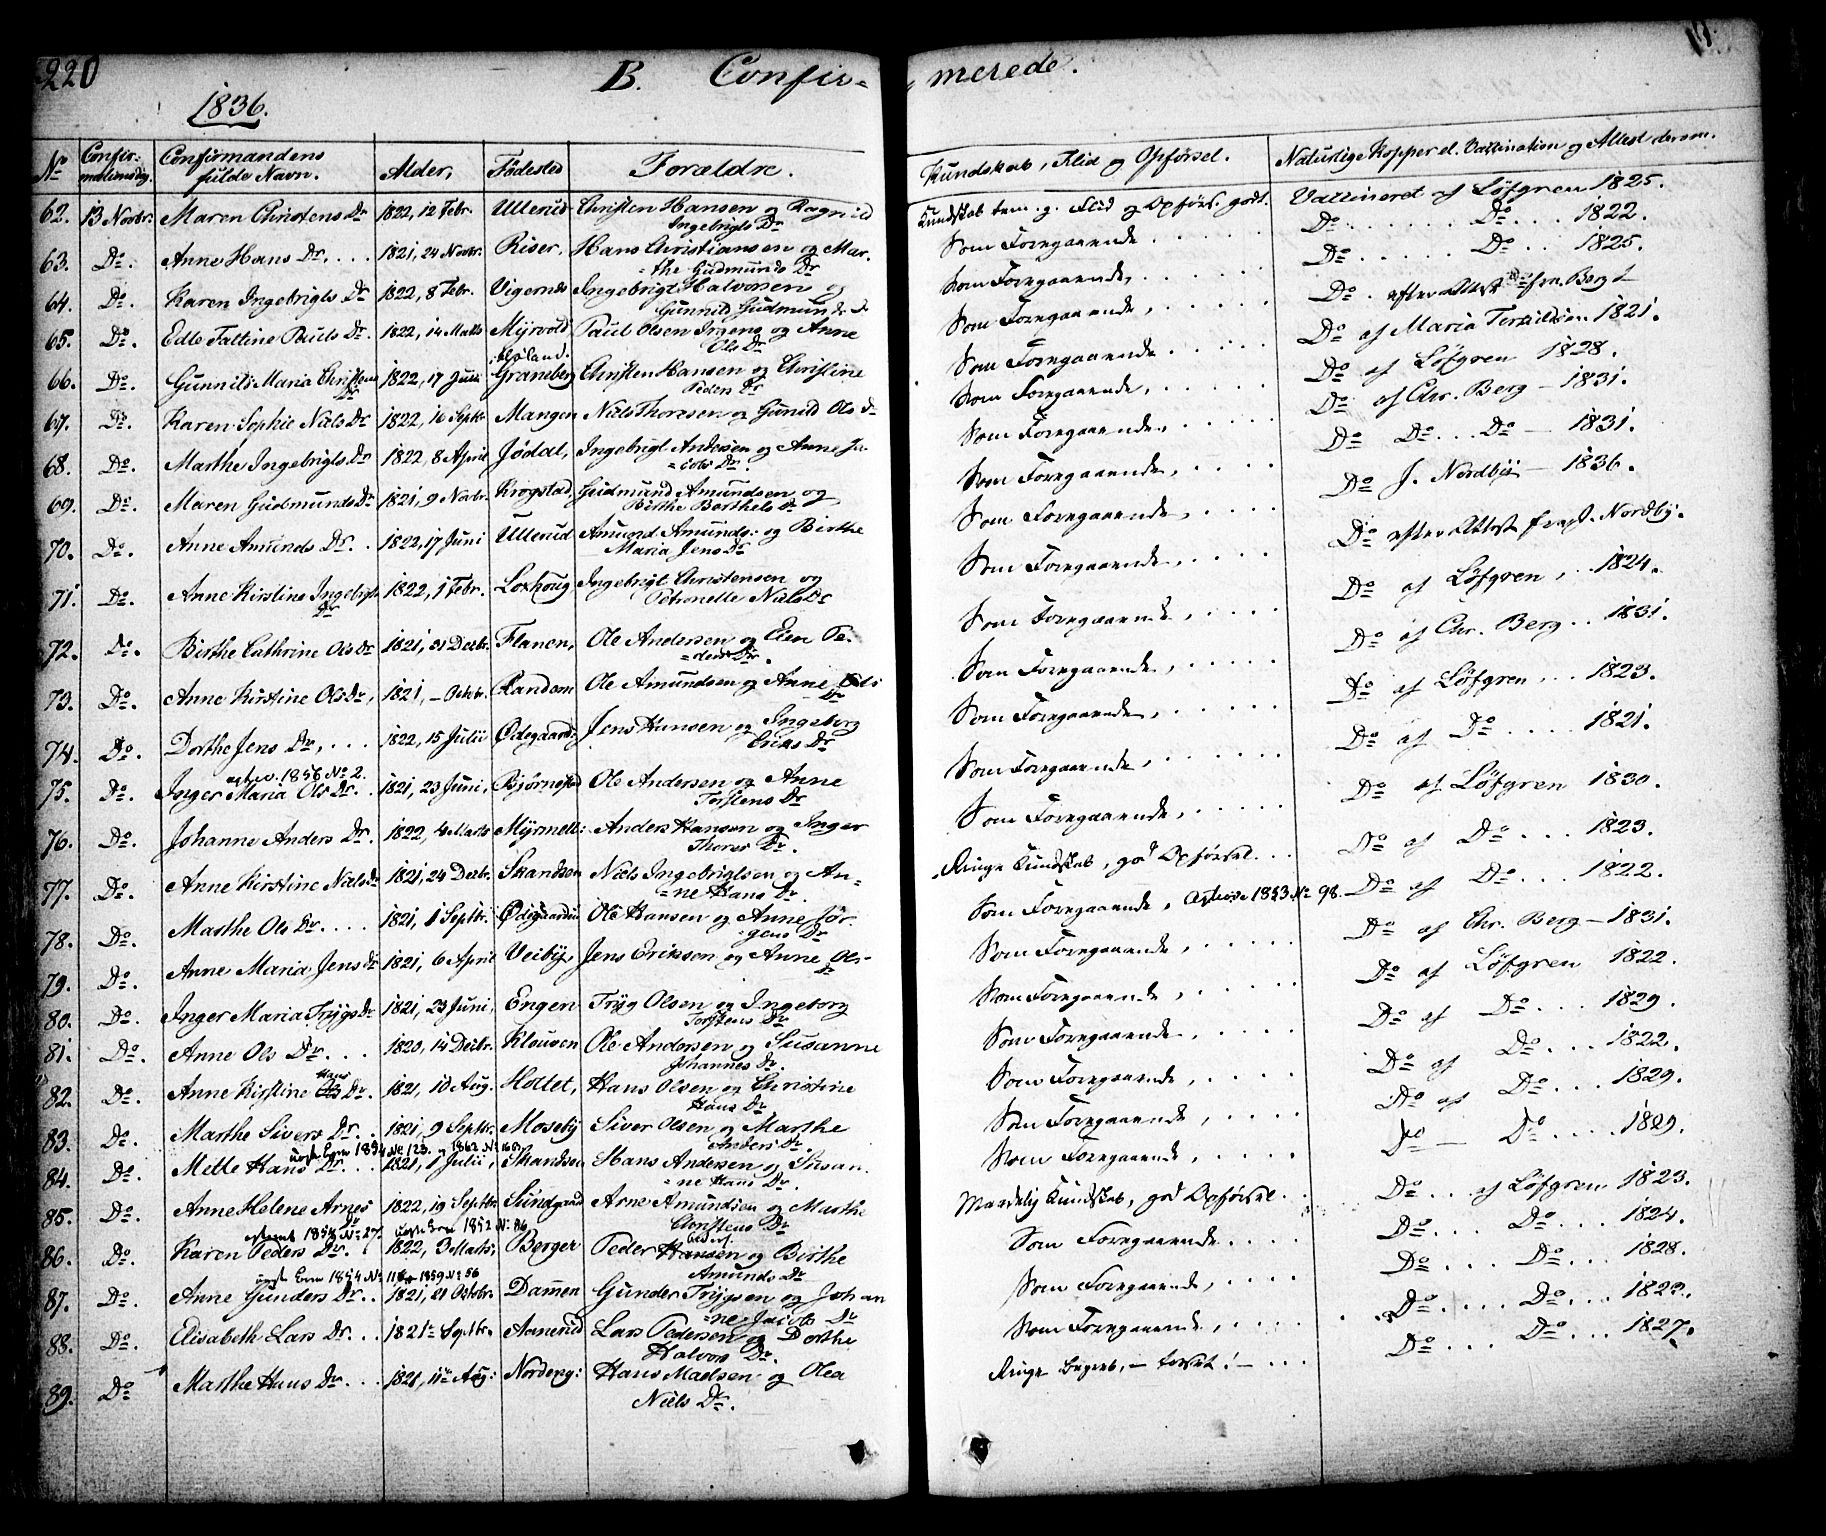 220
B. Confir-
merede.
1836.
No Confir-mationsdag. Confirmandens fulde Navn. Alder, Fødested Forældre. Kundskab, Flid og Opførsel. Naturlige Kopper el. Vaccination og Attest derom.
62. 13 Novbr. Maren Christens Dr 1822, 12 Febr. Ullerud Christen Hansen og Ragnid Ingebrigts Dr Kundskab tem. g. Flid og Opførs. godt. Vaccineret af Löfgren 1825.
63. Do. Anne Hans Dr. . . . 1821, 24 Novbr. Riser, Hans Christiansen og Mar=the Gudmunds Dr Som Foregaaende . . . Do . . . Do . . . 1822.
64. Do. Karen Ingebrigts Dr 1822, 8 Febr. Vigernes Ingebrigt Halvorsen og Gunnid Gudmunds Dr Som Foregaaende, . . . Do . . . Do . . . 1825.
65. Do. Edle Talline Pauls Dr. 1822, 14 Marts Myrvold Paul Olsen og Anne Ols Dr Som Foregaaende, . . . Do . efter Attest fra Berg
66. Do. Gunnild Maria Christens Dr 1822, 17 Juni Graneberg Christen Hansen og Christine Peders Dr Som Foregaaende . . . Do af Maria 1821.
67. Do. Karen Sophie Niels Dr 1822, 16 Septbr Mangen Niels Thoresen og Gunid Ols Dr Som Foregaaende, . . . Do af Löfgren 1828.
68. Do. Marthe Ingebrigts Dr 1822, 8 April Jødal, Ingebrigt Andersen og Anne Ja=cobs Dr. Som Foregaaende, . . . Do af Chr. Berg - 1831.
69. Do. Maren Gudmunds Dr 1821, 9 Novbr. Krogstad, Gudmund Amundsen og Birthe Barthels Dr Som Foregaaende, . . . Do Do . . . Do - 1831.
70. Do. Anne Amunds Dr. . . 1822, 17 Juni Ullerud Amund Amunds: og Birthe Maria Jens Dr Som Foregaaende, . . . Do J. Nordby - 1836.
71. Do. Anne Kirstine Ingebrigts Dr 1822, 1 Febr. Loxhoug Ingebrigt Christensen og Petronelle Niels Dr Som Foregaaende, . . . Do efter Attest fra J. Nordby.
72. Do. Birthe Cathrine Ols Dr 1821, 31 Decbr. Flanen, Ole Andersen og Elen Pe=ders Dr. Som Foregaaende, . . . Do af Löfgren, . . 1824.
73. Do. Anne Kirstine Ols Dr, 1821, - Octbr. Randem Ole Amundsen og Anne Ols Dr Som Foregaaende, . . . Do af Chr. Berg . . 1831.
74. Do. Dorthe Jens Dr, . . . 1822, 15 Julii Ødegaard: Jens Hansen og Ingeborg Eriks Dr Som Foregaaende, . . . Do af Löfgren . . . 1823.
1856 No 2.
75. Do. Inger Maria Ols Dr. . 1821, 23 Juni, Bjørnestad Ole Andersen og Anne Torstens Dr Som Foregaaende, . . . Do af Do . . . 1821.
76. Do. Johanne Anders Dr. 1822, 4 Marts Myrmelt: Anders Hansen og Inger Thores Dr. Som Foregaaende, . . . Do af Löfgren 1830.
77. Do. Anne Kirstine Niels Dr 1821, 24 Decbr. Skandsen Niels Ingebrigtsen og An=ne Hans Dr. Ringe Kundskab, god Opførsel . . . Do af Do . . . 1823.
78. Do. Marthe Ols Dr. . . . 1821, 1 Septbr. Ødegaarden Ole Hansen og Anne Jør=gens Dr Som Foregaaende, 1853 No 98. Do af Do . . . 1822.
79. Do. Anne Maria Jens Dr 1821, 6 April Veiby, Jens Eriksen og Anne Ols Dr Som Foregaaende, . . . Do af Chr. Berg - 1831.
80. Do. Inger Maria Trygs Dr 1821, 23 Juni, Engen Tryg Olsen og Ingeborg Torstens Dr Som Foregaaende, . . . Do af Löfgren 1822.
81. Do. Anne Ols Dr . . . 1820, 14 Decbr. Klouven Ole Andersen og Susanne Johannes Dr. Som Foregaaende, . . . Do af Do . . . 1829.
82. Do. Anne Kirstine Hans Dr. 1821, 10 Aug. Holtet, Hans Olsen og Christine Hans Dr Som Foregaaende, . . . Do af Do . . . 1822.
83. Do. Marthe Sivers Dr. . 1821, 9 Septbr. Moseby Siver Olsen og Marthe Anders Dr. Som Foregaaende, . . . Do af Do . . . 1829.
1854 No 123. og 1862 No
84. Do. Mette Hans Dr. . . . 1821, 1 Julii, Skandsen Hans Andersen og Susan=ne Hans Dr. Som Foregaaende, . . . Do - Do . . . 1829.
85. Do. Anne Helene Arnes Dr 1822, 19 Septbr. Sundgaard Arne Amundsen og Marthe Christens Dr Maadelig Kundskab, god Opførsel . . Do . . . af Löfgren 1823.
1854 No 27. 1852 No 86
86. Do. Karen Peders Dr. 1822, 3 Marts, Berger Peder Hansen og Birthe Amunds Dr Som Foregaaende . . . Do . . . Do . . . 1824.
1854 No 11 1859 No 56
87. Do. Anne Gunders Dr. . . 1821, 21 Octobr. Dammen Gunder Trygsen og Johan=ne Jacobs Dr Som Foregaaende, . . . Do . . . Do . . . 1828.
88. Do. Elisabeth Lars Dr. . . 1821 - Septbr. Aanerud Lars Pedersen og Dorthe Halvors Dr. Som Foregaaende, . . . Do . . . Do . . . 1823.
89. Do. Marthe Hans Dr. . . 1821, 11te Aug: Nordeng: Hans Madsen og Olea Niels Dr. Ringe Begreb, - . . . Do . . . Do . . . 1827.